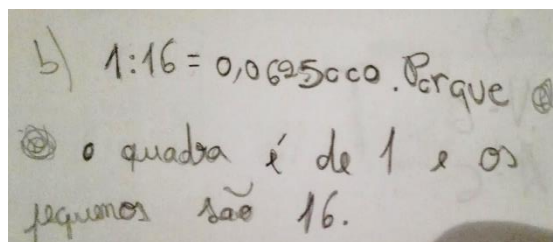 b) 1:16 = 0,0625000. Porque
o quadra é de 1 e os
pequenos são 16.